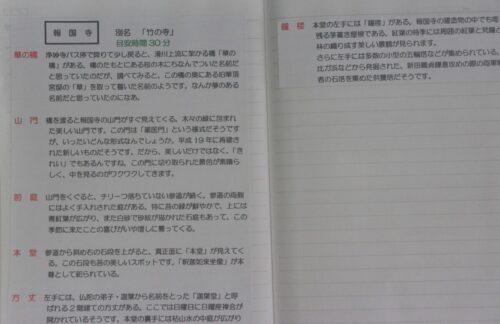 報国寺 別名 「竹の寺」
目安時間30分
華の橋 浄妙寺バス停で降りて少し戻ると、滑川上流に架かる橋「華の
橋」がある。橋のたもとにある桜の木にちなんでついた名前だ
と思っていたのだが、調べてみると、この橋の奥にある旧華頂
宮邸の「華」を取って着いた名前のようです。なんか夢のある
名前だと思っていたのになあ。
山門 橋を渡ると報国寺の山門がすぐ見えてくる。木々の緑に包まれ
た美しい山門です。この門は「薬医門」という様式だそうです
が、いったいどんな形式なんでしょうか。平成19年に再建され
た新しいものだそうです。だから、美しいだけではなく、「き
れい」でもあるんですね。この門に切り取られた景色が素晴ら
しく、中を見るのがワクワクしてきます。
前庭 山門をくぐると、チリ一つ落ちていない参道が続く。参道の両側
にはよく手入された庭がある。特に苔の緑が鮮やかで、上には
青紅葉が広がり、また白砂で砂紋が描かれた石庭もあって、この
季節に来たことの喜びがいや増しに募ってくる。
本堂 参道から斜め右の石段を上がると、真正面に「本堂」が見えてく
る。この石段も苔の美しいスポットです。「釈迦如来坐像」が本
尊として祀られている。
方丈 左手には、仏陀の弟子・迦葉から名前をとった「迦葉堂」と呼
ばれる2階建ての方丈がある。ここでは日曜日に日曜座禅会が
開かれているそうです。本堂の裏手には枯山水の中庭が広がり
鐘楼 本堂の左手には「鐘楼」がある。報国寺の建造物の中では
残る茅葺き屋根である。紅葉の時季には周囲の紅葉と梵鐘
林の織り成す美しい景観が見られます。
さらに左手には多数の小型の五輪塔などが集められている。
比ガ浜などから発掘された、新田義貞鎌倉攻めの際の両軍
者の石塔を集めた供養塔だそうです。